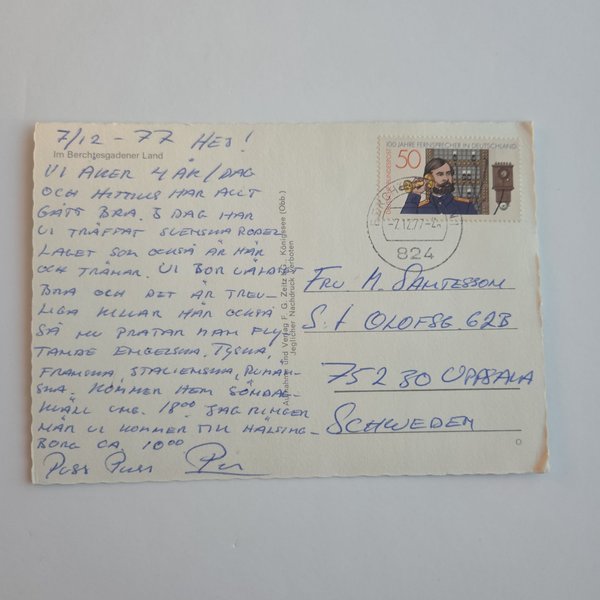 7/12 - 77 HEJ!
Im Berchtesgadener Land
VI ÅKER 4 ÅK/DAG
OCH HITTILLS HAR ALLT
GÅTT BRA. I DAG HAR
VI TRÄFFAT SVENSKA RODEL
LAGET SOM OCKSÅ ÄR HÄR
OCH TRÄNAR. VI BOR VÄLDIGT
BRA OCH DET ÄR TREV-
LIGA KILLAR HÄR OCKSÅ
SÅ NU PRATAR MAN FLY-
TANDE ENGELSKA, TYSKA,
FRANSKA, ITALIENSKA, RUMÄN-
SKA. KOMMER HEM SÖNDAG
KVÄLL UNG. 18.00 JAG RINGER
NÄR VI KOMMER TILL HÄLSING-
BORG CA. 10.00
Puss Puss Per
Aufnahme und Verlag F. G. Zeitz KG., Königssee (Obb.)
Jeglicher Nachdruck verboten
100 JAHRE FERNSPRECHER IN DEUTSCHLAND
DEUTSCHE BUNDESPOST
50
-7.12.77-
824
FRU M. SAMTESSON
S:t OLOFSG. 62B
752 30 UPPSALA
SCHWEDEN